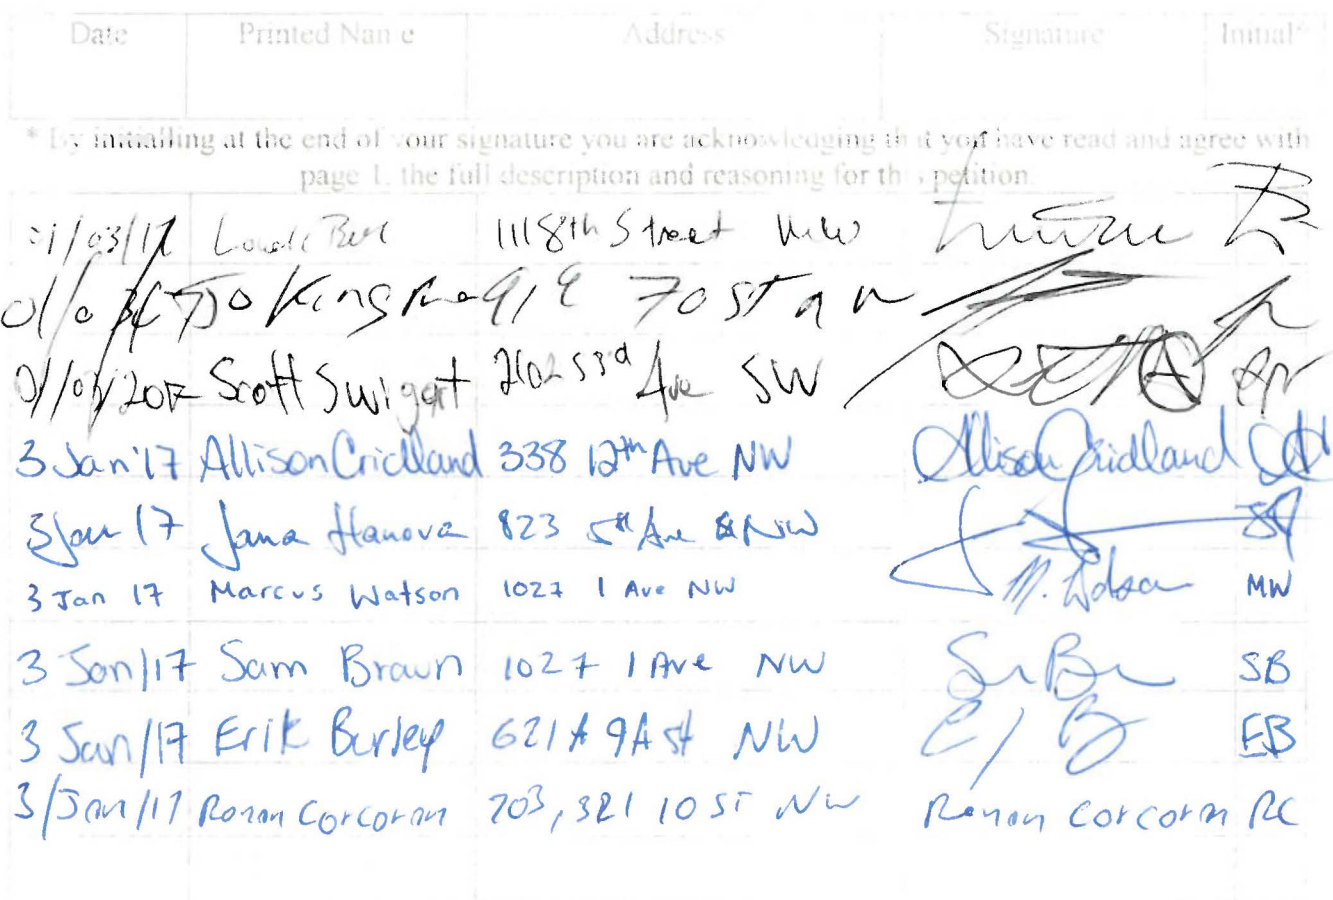 Date Printed Name Address Signature Initial*
* By initialling at the end of your signature you are acknowledging that you have read and agree with
page 1, the full description and reasoning for this petition
01/03/17 1118th Street NW
01/03/17 Jo King 919 70 ST NW
2017 Scott Swigart 53rd Ave SW
3 Jan'17 Allison Cridland 338 12th Ave NW Allison Cridland
3 Jan 17 Jana Hanova 823 5th Ave NW
3 Jan 17 Marcus Watson 1027 1 Ave NW M. Watson MW
3 Jan/17 Sam Brown 1027 1 Ave NW SB
3 Jan/17 Erik Burley 621A 9A St NW EB
3/Jan/17 Ronan Corcoran 703, 321 10 ST NW Ronan Corcoran RC